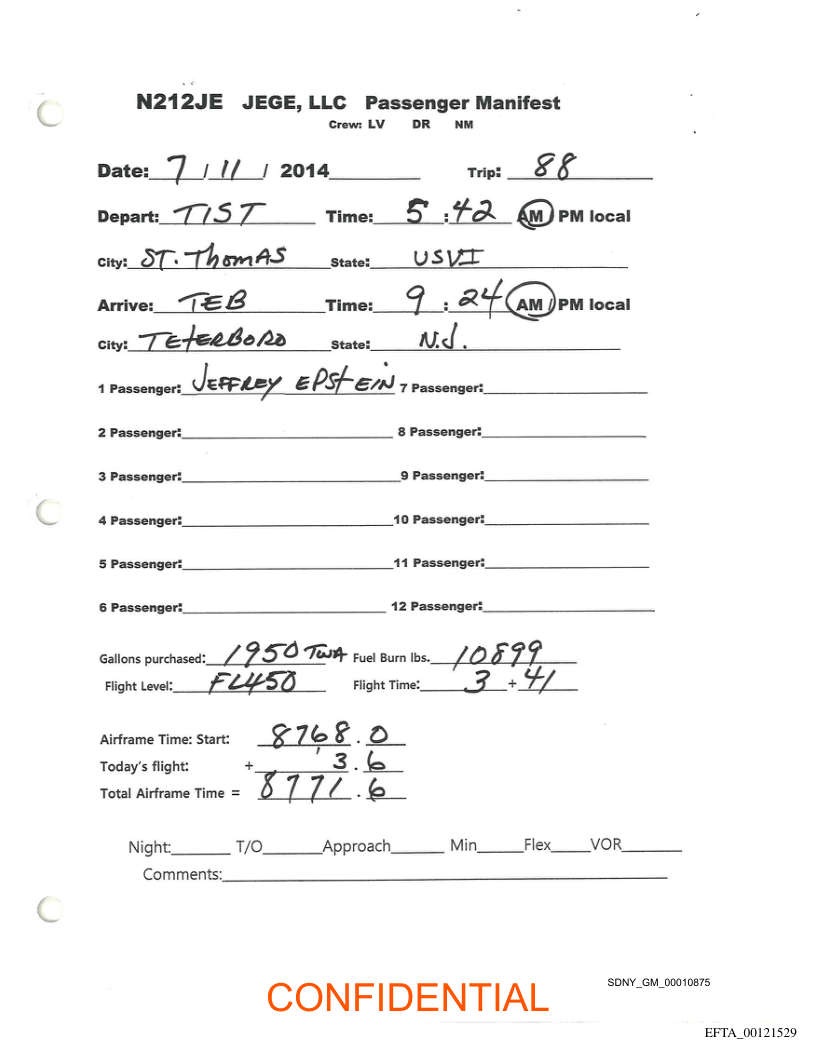 N212JE JEGE, LLC Passenger Manifest
Crew: LV DR NM
Date: 7 / 11 / 2014 Trip: 88
Depart: TIST Time: 5 : 42 AM / PM local
City: ST. THOMAS State: USVI
Arrive: TEB Time: 9 : 24 AM / PM local
City: TETERBORO State: N.J.
1 Passenger: JEFFREY EPSTEIN 7 Passenger:
2 Passenger: 8 Passenger:
3 Passenger: 9 Passenger:
4 Passenger: 10 Passenger:
5 Passenger: 11 Passenger:
6 Passenger: 12 Passenger:
Gallons purchased: 1950 TWA Fuel Burn lbs. 10899
Flight Level: FL450 Flight Time: 3 + 41
Airframe Time: Start: 8768.0
Today's flight: + 3.6
Total Airframe Time = 8771.6
Night: T/O Approach Min Flex VOR
Comments:
SDNY_GM_00010875
CONFIDENTIAL
EFTA_00121529